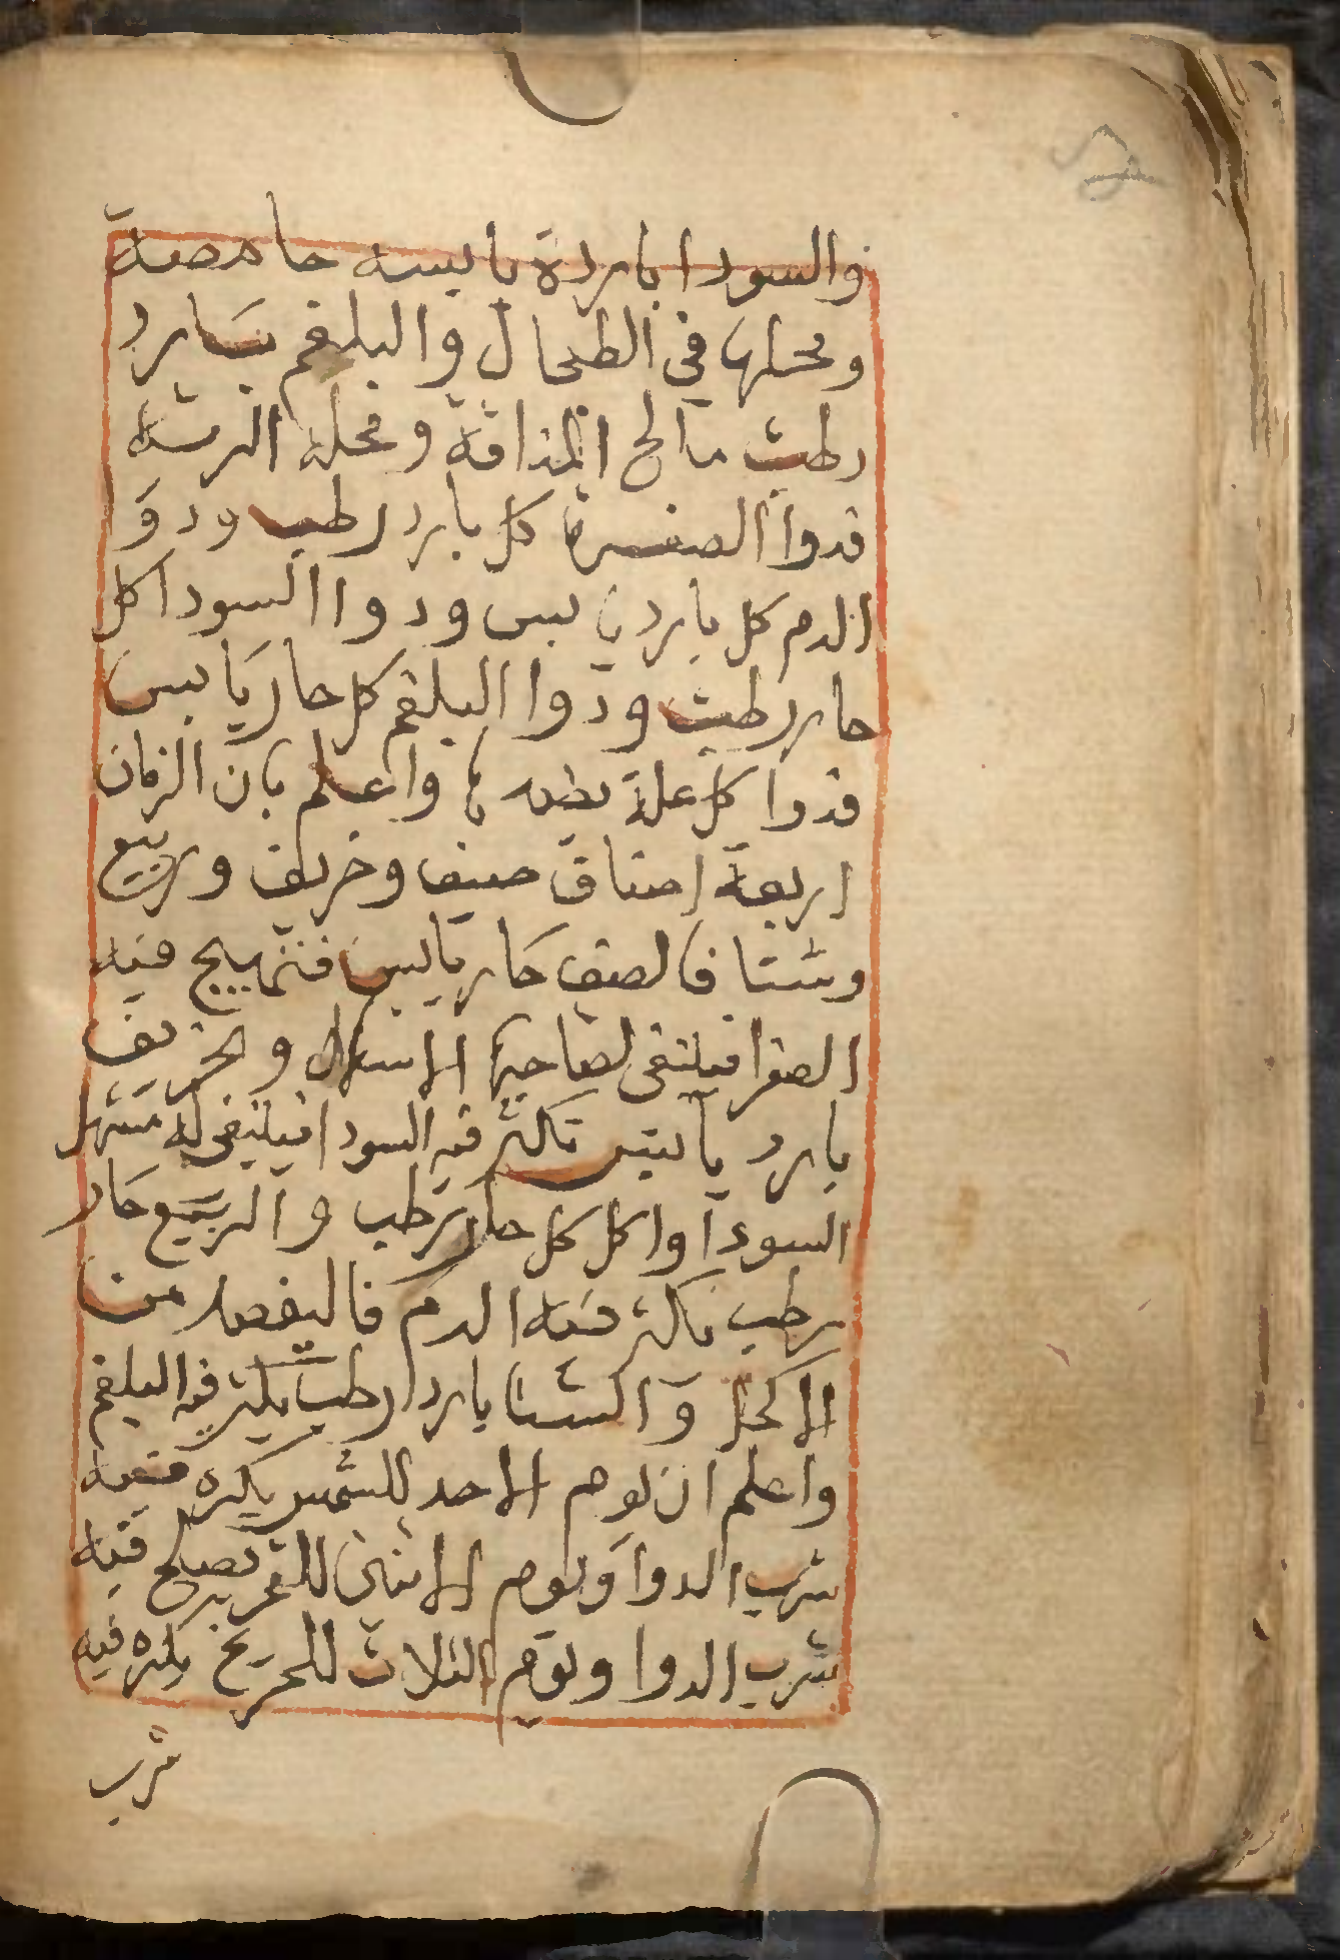 والسودا باردة يابسه حامضة
ومحلها في الطحال والبلغم بارد
رطب مالح المذاقة ومحله الريه
فدوا الصفرة كل بارد رطب ودوا
الدم كل بارد يابس ودوا السودا كل
حار رطب ودوا البلغم كل حار يابس
فدوا كل علة بضدها واعلم بان الزمان
اربعة اصناف صيف وخريف وربيع
وشتا فالصيف حار يابس فتهيج فيه
الصفرا فينبغي لصاحبها الاسهال والخريف
بارد يابس تكثر فيه السودا فينبغي له مسهل
السودا واكل كل حار رطب والربيع حار
رطب تكثر فيه الدم فاليفصد من
الاكحل والشتا بارد رطب يكثر فيه البلغم
واعلم ان يوم الاحد للشمس يكره فيه
شرب الدوا ويوم الاثنين للقمر يصلح فيه
شرب الدوا ويوم الثلاث للمريخ يكره فيه
شرب